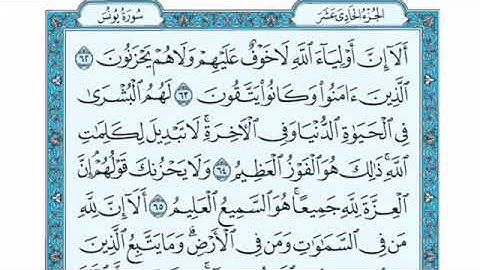 الجزء الحادي عشر
سورة يونس
أَلَآ إِنَّ أَوْلِيَآءَ ٱللَّهِ لَا خَوْفٌ عَلَيْهِمْ وَلَا هُمْ يَحْزَنُونَ ٦٢
ٱلَّذِينَ ءَامَنُوا۟ وَكَانُوا۟ يَتَّقُونَ ٦٣ لَهُمُ ٱلْبُشْرَىٰ
فِى ٱلْحَيَوٰةِ ٱلدُّنْيَا وَفِى ٱلْءَاخِرَةِ ۚ لَا تَبْدِيلَ لِكَلِمَٰتِ
ٱللَّهِ ۚ ذَٰلِكَ هُوَ ٱلْفَوْزُ ٱلْعَظِيمُ ٦٤ وَلَا يَحْزُنكَ قَوْلُهُمْ ۘ إِنَّ
ٱلْعِزَّةَ لِلَّهِ جَمِيعًا ۚ هُوَ ٱلسَّمِيعُ ٱلْعَلِيمُ ٦٥ أَلَآ إِنَّ لِلَّهِ
مَن فِى ٱلسَّمَٰوَٰتِ وَمَن فِى ٱلْأَرْضِ ۗ وَمَا يَتَّبِعُ ٱلَّذِينَ